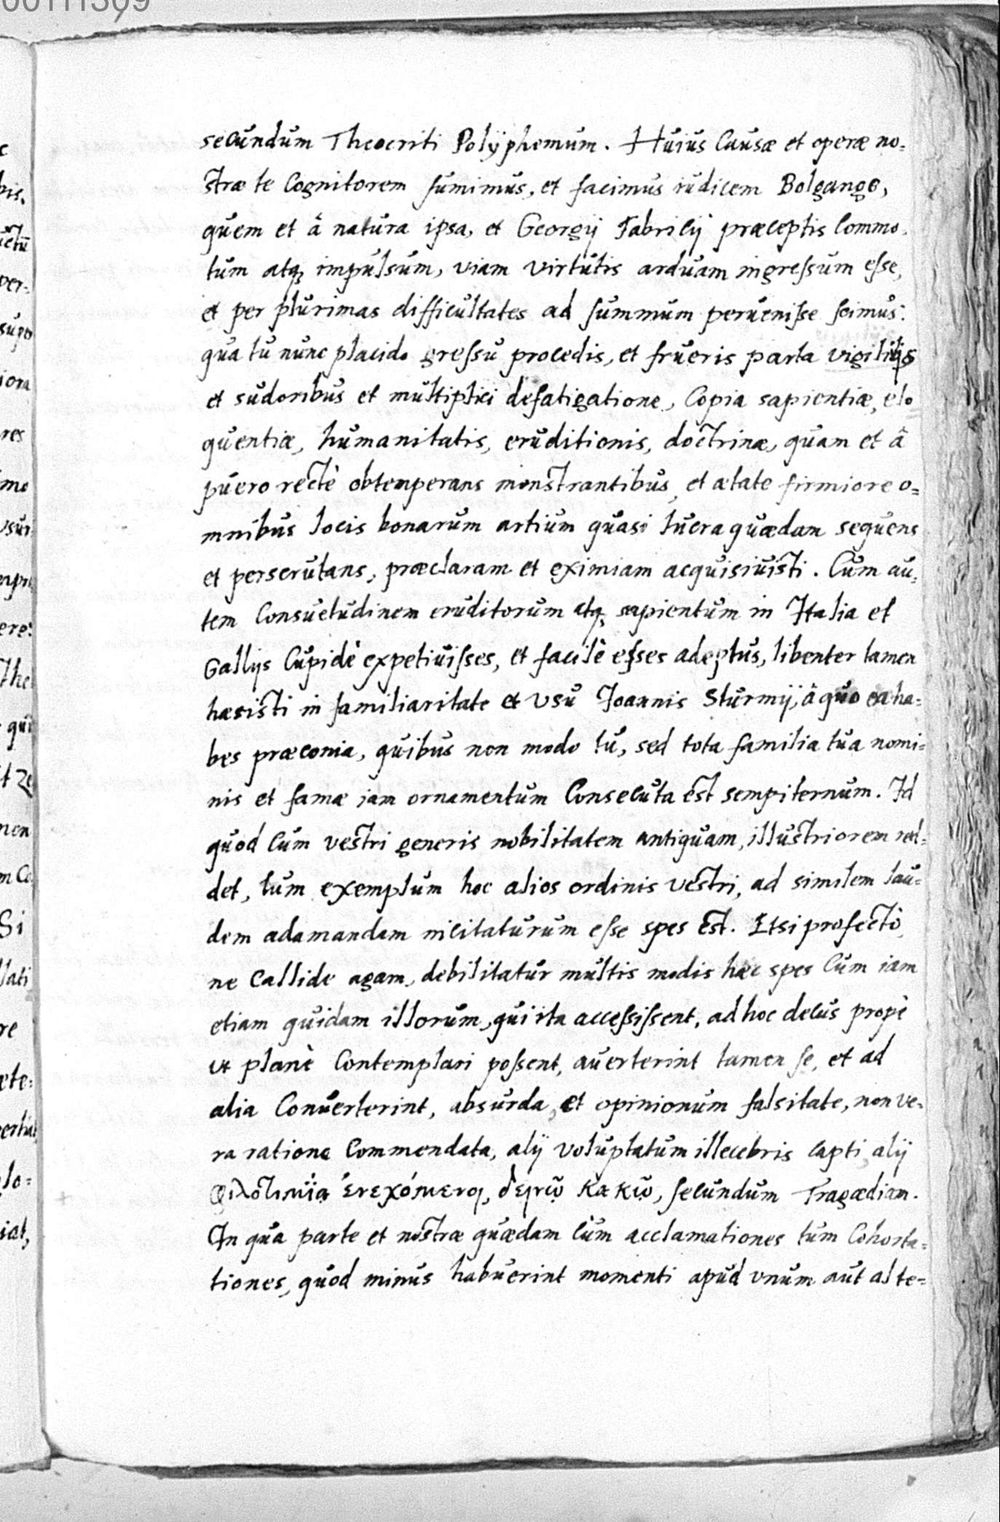 secundum Theocriti Polyphemum. Huius Causæ et operæ no-
stræ te Cognitorem sumimus, et facimus iudicem Bolgange,
quem et à natura ipsa, et Georgij Fabricij præceptis Commo-
tum atq; impulsum, viam virtutis arduam ingressum esse,
et per plurimas difficultates ad summum peruenisse scimus:
qua tu nunc placido gressu procedis, et frueris parta vigilijs
et sudoribus et multiplici defatigatione, Copia sapientiæ, elo
quentiæ, humanitatis, eruditionis, doctrinæ, quam et à
puero rectè obtemperans monstrantibus, et ætate firmiore o-
mnibus locis bonarum artium quasi lucra quædam sequens
et perscrutans, præclaram et eximiam acquisiuisti. Cum au-
tem Consuetudinem eruditorum atq; sapientum in Italia et
Gallijs Cupidè expetiuisses, et facilè esses adeptus, libenter tamen
hæsisti in familiaritate et vsu Joannis Sturmij, à quo ea ha-
bes præconia, quibus non modo tu, sed tota familia tua nomi-
nis et famæ iam ornamentum Consecuta est sempiternum. Id
quod Cum vestri generis nobilitatem antiquam, illustriorem red-
det, tum exemplum hoc alios ordinis vestri, ad similem lau-
dem adamandam incitaturum esse spes est. Etsi profectò,
ne Callide agam, debilitatur multis modis hæc spes Cum iam
etiam quidam illorum, qui ita accessissent, ad hoc decus propè
vt planè Contemplari possent, auerterint tamen se, et ad
alia Conuerterint, absurda, et opinionum falsitate, non ve-
ra ratione Commendata, alij voluptatum illecebris capti, alij
φιλοτιμία ἐνεχόμενοι, δεινῷ κακῷ, secundum Tragædiam.
In qua parte et nostræ quædam cùm acclamationes tum Cohorta-
tiones, quod minus habuerint momenti apud vnum aut alte-